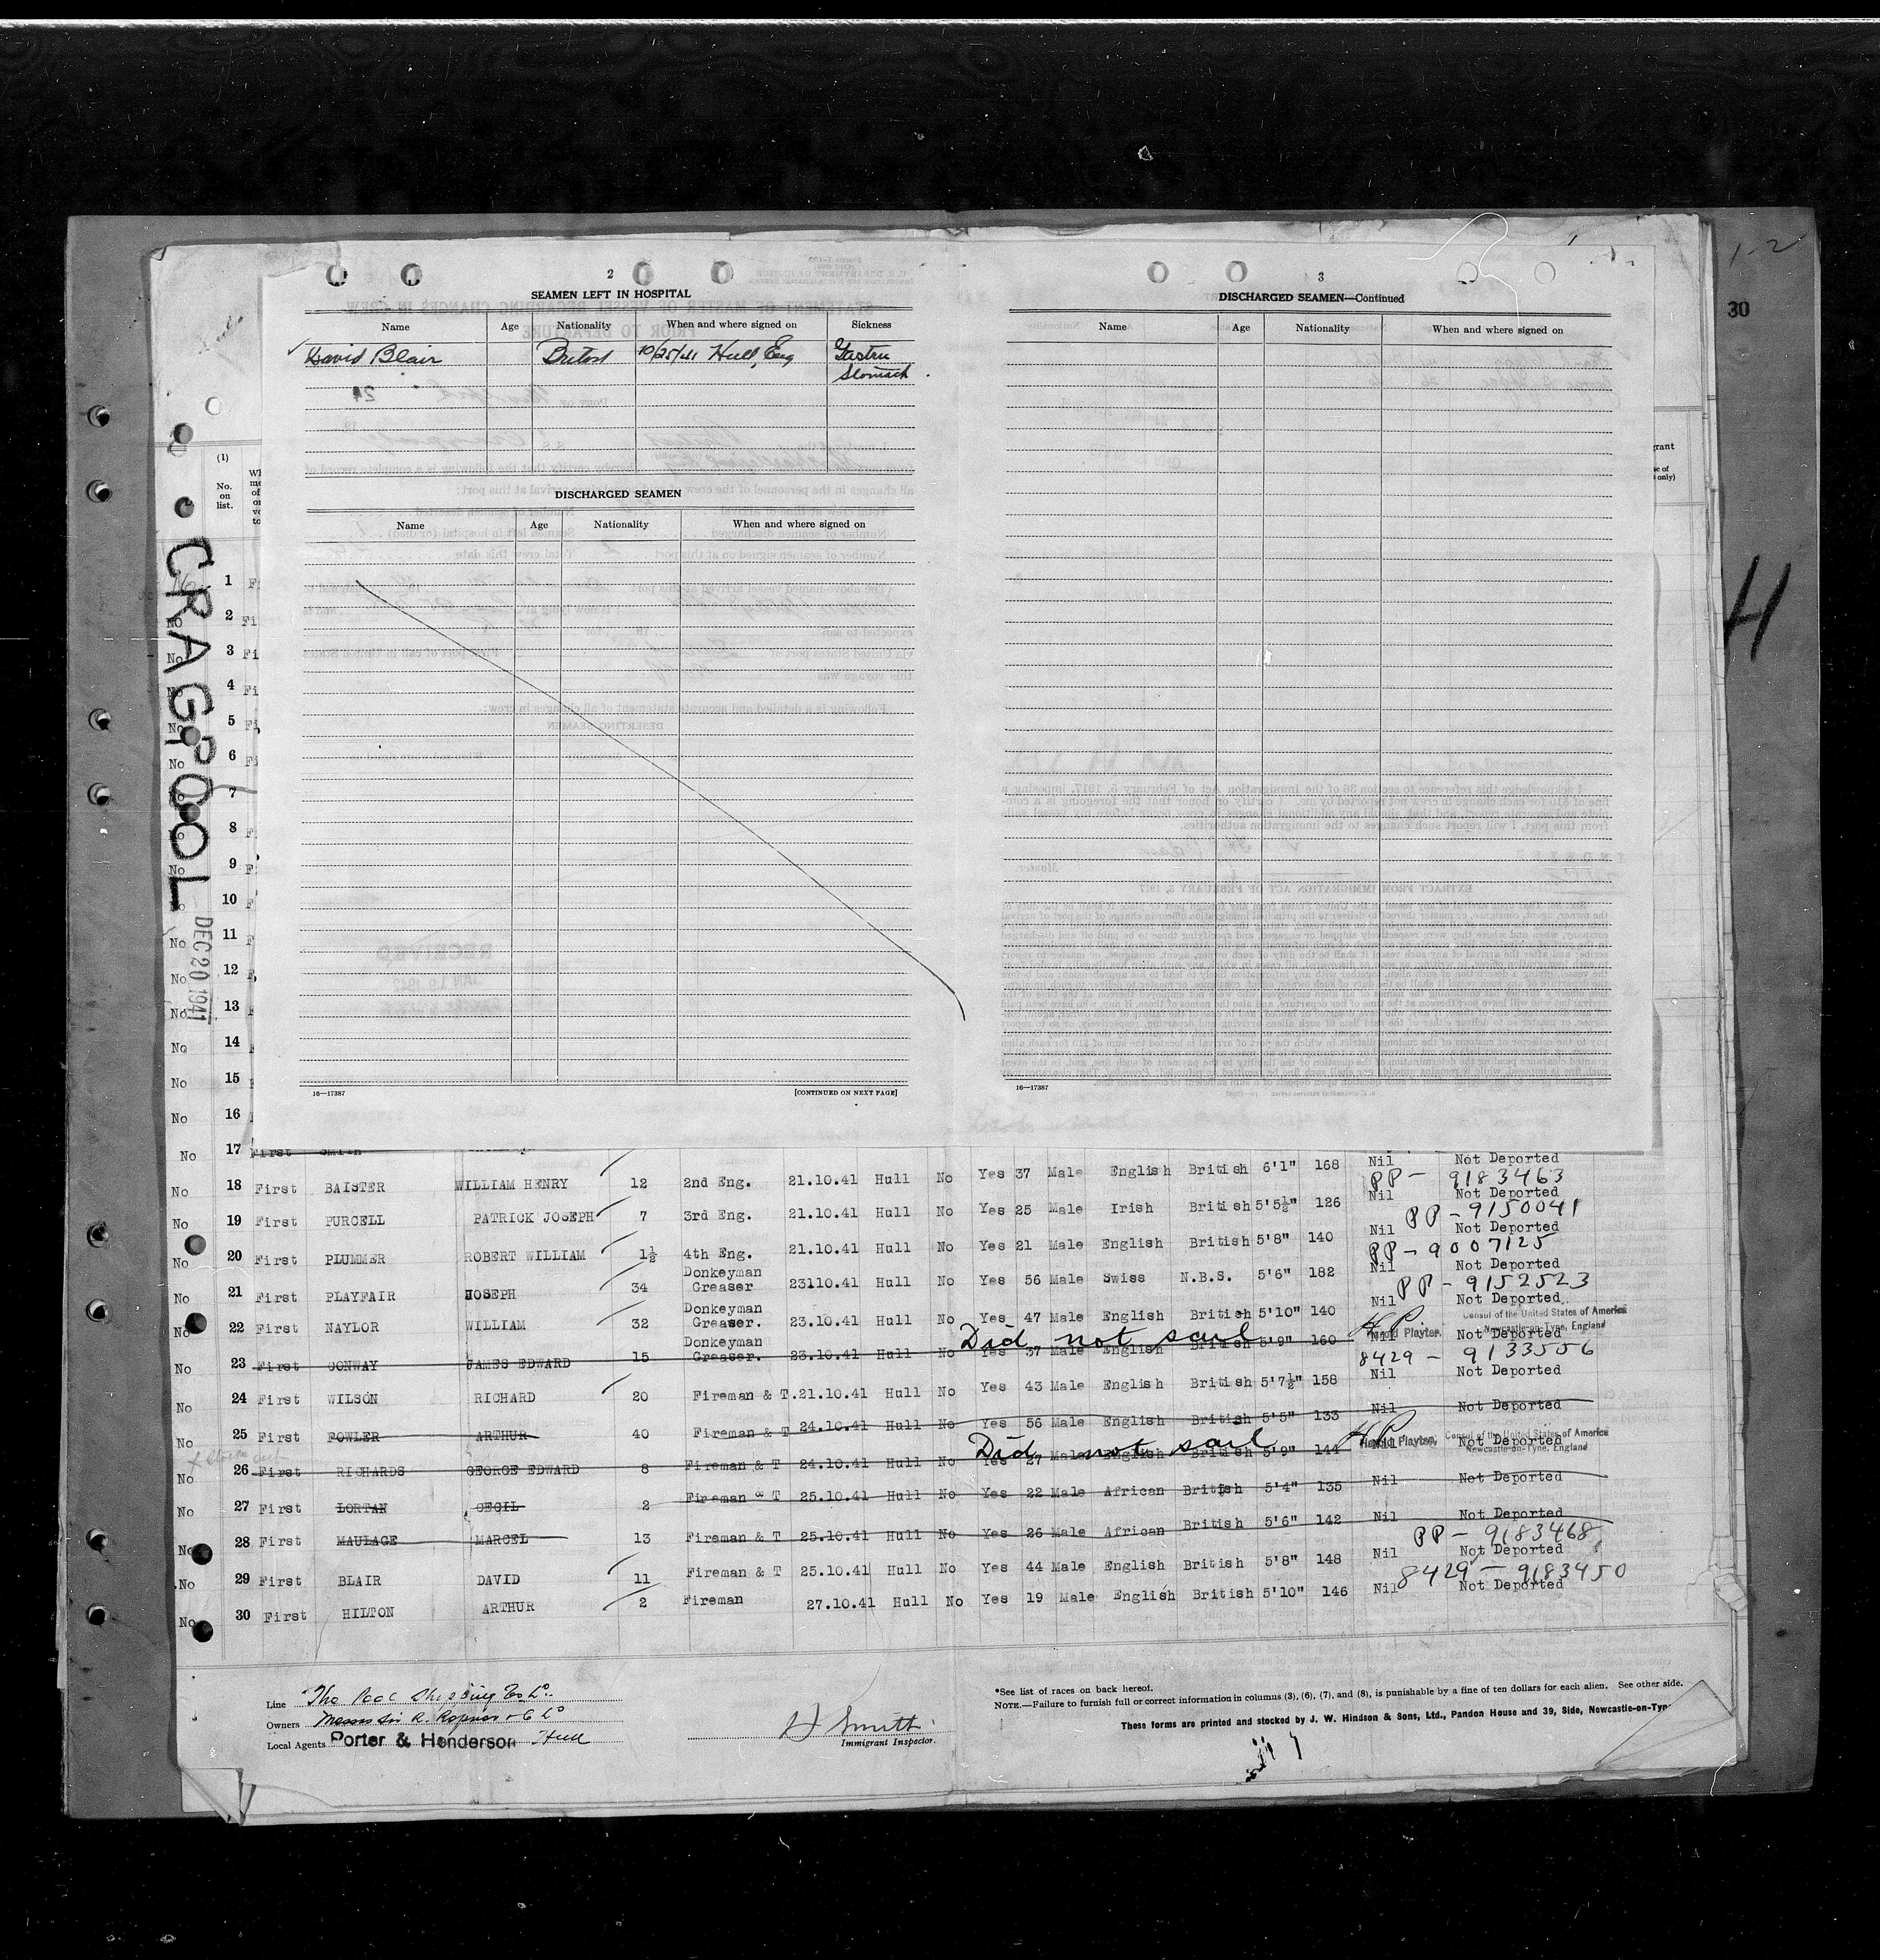 1-2
30
H
2
SEAMEN LEFT IN HOSPITAL
Name Age Nationality When and where signed on Sickness
David Blair 10/25/41 Hull, Eng
Stomach
DISCHARGED SEAMEN
Name Age Nationality When and where signed on
16—17387 [CONTINUED ON NEXT PAGE]
3
DISCHARGED SEAMEN—Continued
Name Age Nationality When and where signed on
16—17387
(1)
No. on list.
CRAGPOOL
DEC 20 1941
1
No 2 Fi
No 3 Fi
No 4 Fi
No 5 Fi
No 6 Fi
7
No 8
No 9
No 10
No 11
No 12
No 13
No 14
No 15
No 16
No 17 First SMITH
No 18 First BAISTER WILLIAM HENRY 12 2nd Eng. 21.10.41 Hull No Yes 37 Male English British 6'1" 168 Nil Not Deported
PP - 9183463
No 19 First PURCELL PATRICK JOSEPH 7 3rd Eng. 21.10.41 Hull No Yes 25 Male Irish British 5'5½" 126 Nil Not Deported
PP - 9150041
No 20 First PLUMMER ROBERT WILLIAM 1½ 4th Eng. 21.10.41 Hull No Yes 21 Male English British 5'8" 140 Nil Not Deported
PP - 9007125
No 21 First PLAYFAIR JOSEPH 34 Donkeyman Greaser 23110.41 Hull No Yes 56 Male Swiss N.B.S. 5'6" 182 Nil Not Deported
PP - 9152523
No 22 First NAYLOR WILLIAM 32 Donkeyman Greaser. 23.10.41 Hull No Yes 47 Male English British 5'10" 140 Nil Not Deported
Did not sail HP Harold Playter, Consul of the United States of America Newcastle-on-Tyne, England
No 23 First CONWAY JAMES EDWARD 15 Donkeyman Greaser. 23.10.41 Hull No Yes 37 Male English British 5'9" 160 Nil Not Deported
8429 - 9133556
No 24 First WILSON RICHARD 20 Fireman & T. 21.10.41 Hull No Yes 43 Male English British 5'7½" 158 Nil Not Deported
No 25 First FOWLER ARTHUR 40 Fireman & T 24.10.41 Hull No Yes 56 Male English British 5'5" 133 Nil Not Deported
Did not sail HP Harold Playter, Consul of the United States of America Newcastle-on-Tyne, England
No 26 First RICHARDS GEORGE EDWARD 8 Fireman & T 24.10.41 Hull No Yes 27 Male English British 5'9" 144 Nil Not Deported
No 27 First LORTAN CECIL 2 Fireman & T 25.10.41 Hull No Yes 22 Male African British 5'4" 135 Nil Not Deported
No 28 First MAULAGE MARCEL 13 Fireman & T 25.10.41 Hull No Yes 26 Male African British 5'6" 142 Nil Not Deported
PP - 9183468
No 29 First BLAIR DAVID 11 Fireman & T 25.10.41 Hull No Yes 44 Male English British 5'8" 148 Nil Not Deported
8429 - 9183450
No 30 First HILTON ARTHUR 2 Fireman 27.10.41 Hull No Yes 19 Male English British 5'10" 146 Nil Not Deported
Line The Pool Shipping Co Lo.
Owners Messrs Sir R. Ropner & C Lo
Local Agents Porter & Henderson, Hull
H Smith
Immigrant Inspector.
*See list of races on back hereof.
NOTE.—Failure to furnish full or correct information in columns (3), (6), (7), and (8), is punishable by a fine of ten dollars for each alien. See other side.
These forms are printed and stocked by J. W. Hindson & Sons, Ltd., Pandon House and 39, Side, Newcastle-on-Tyne